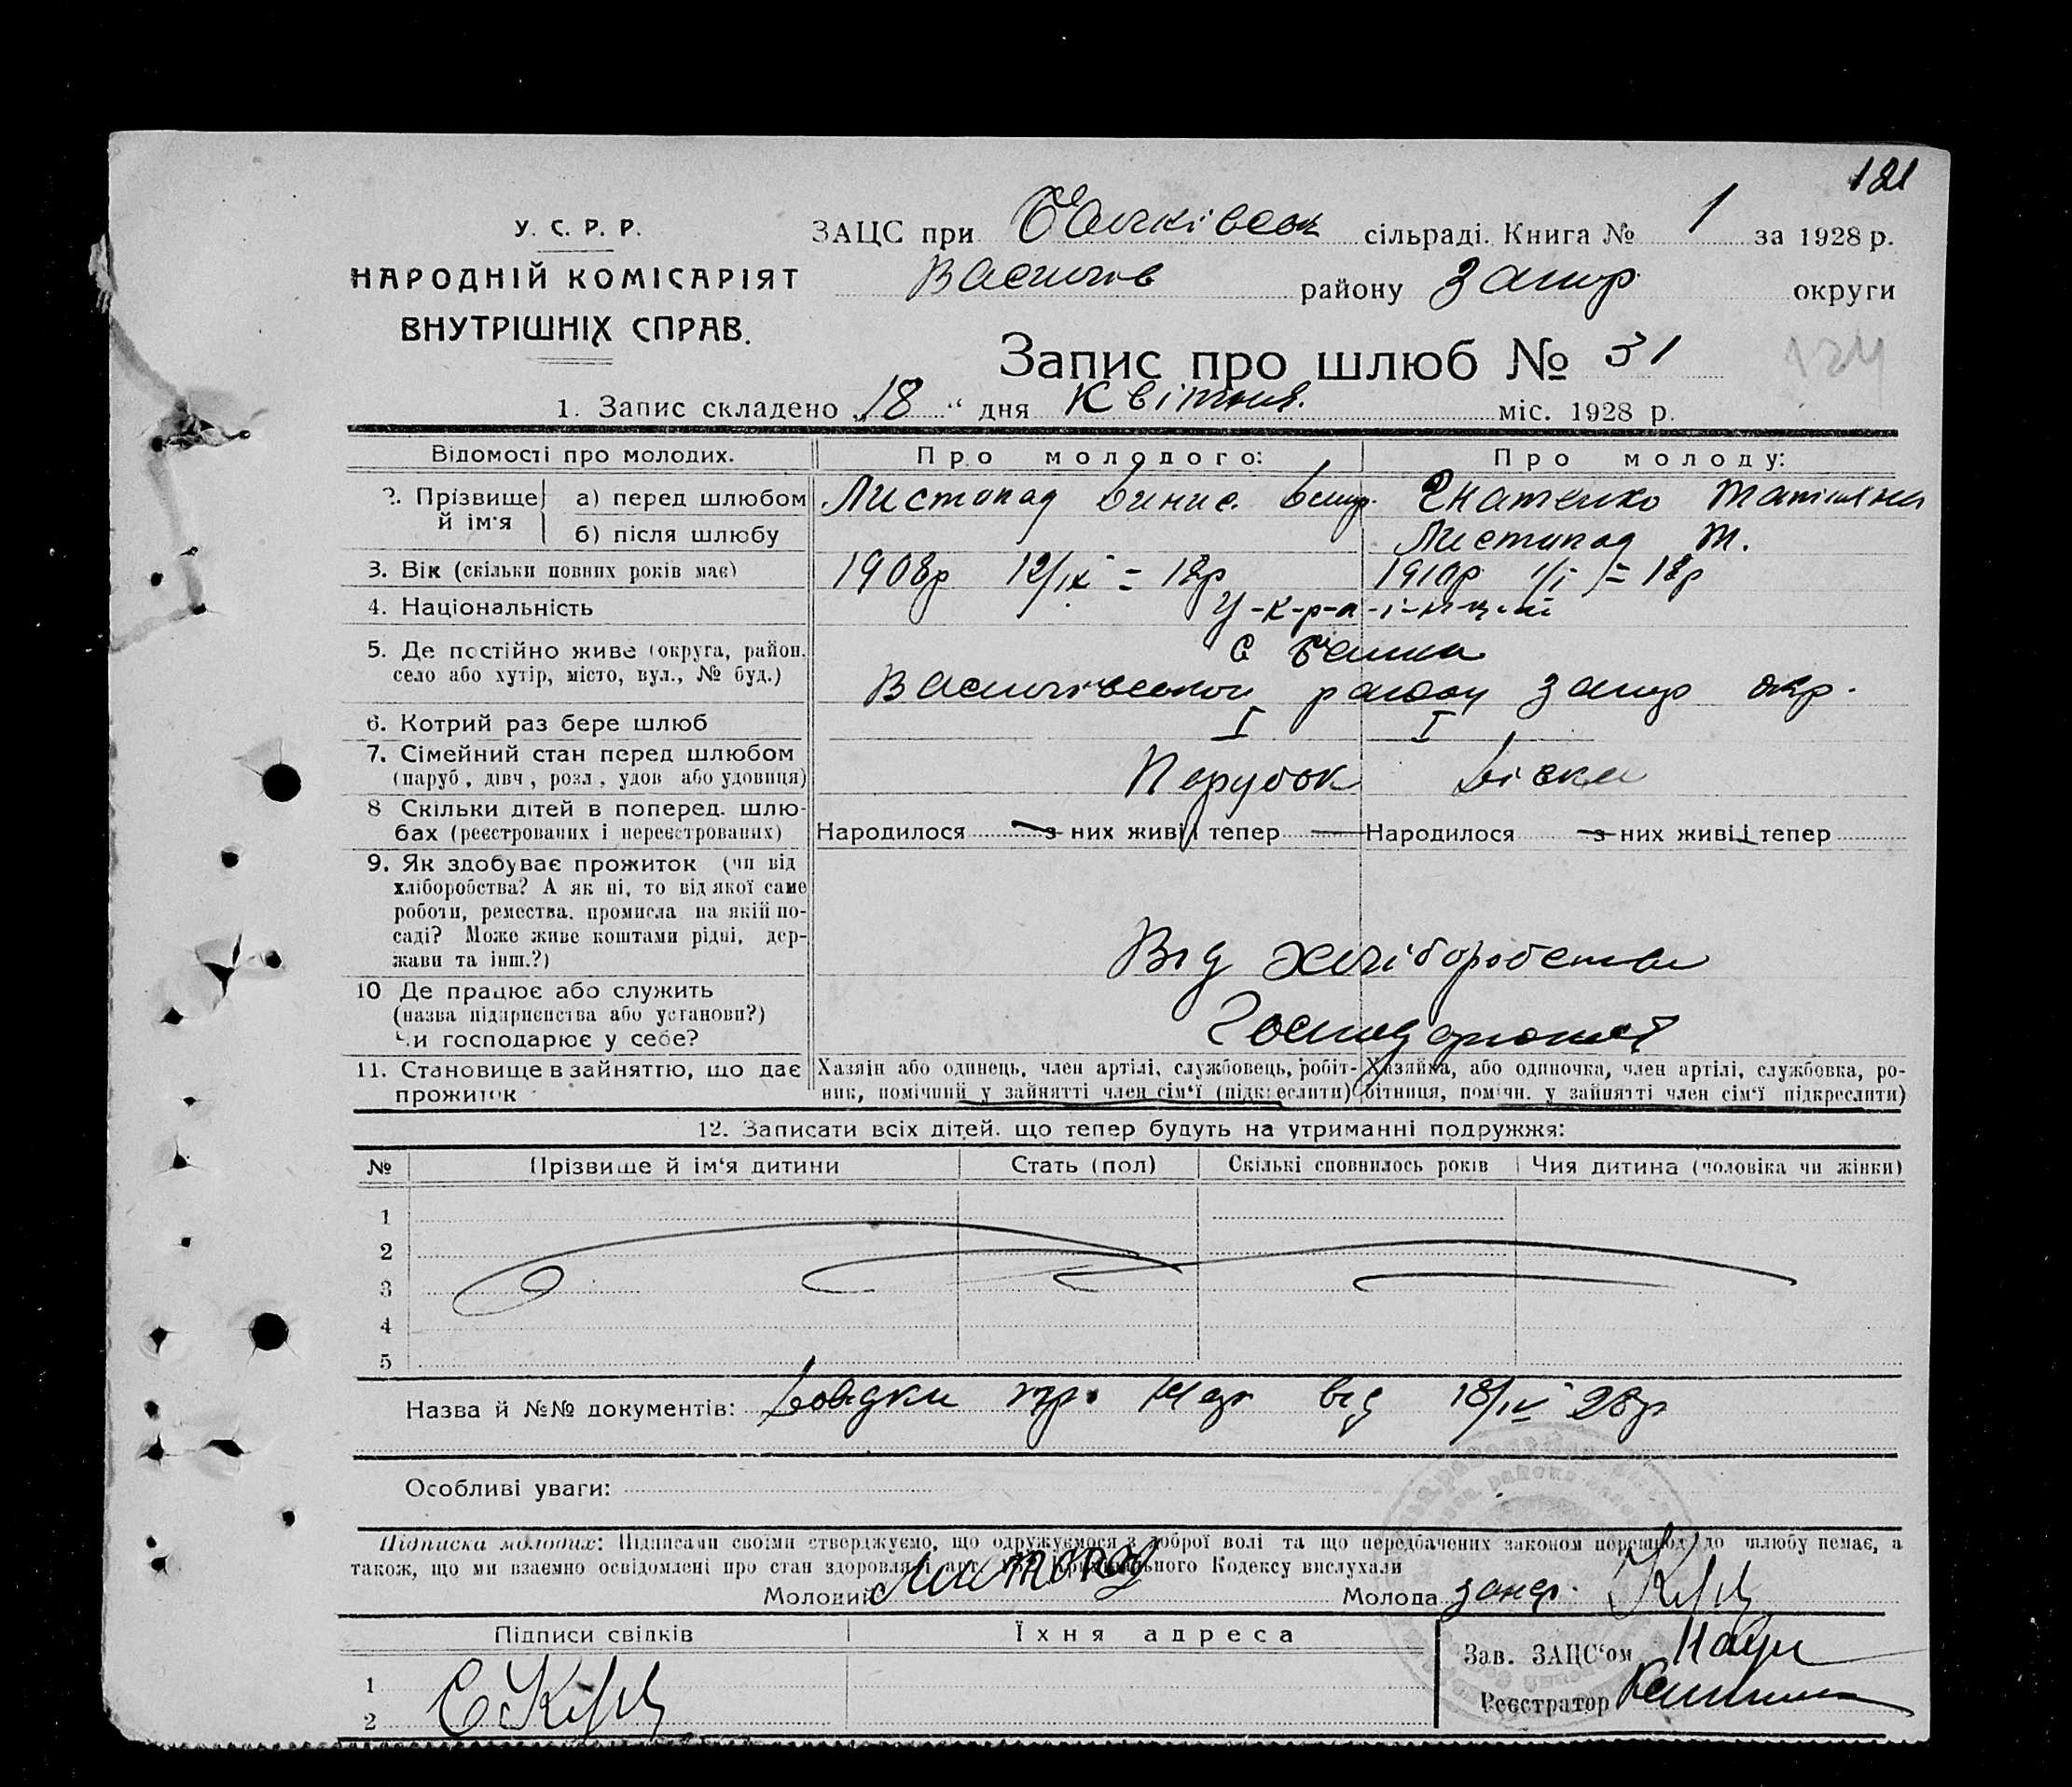 121
У. С. Р. Р.
НАРОДНІЙ КОМІСАРІЯТ
ВНУТРІШНІХ СПРАВ.
ЗАЦС при сільраді. Книга № 1 за 1928 р.
району Запор округи
Запис про шлюб № 31
124
1. Запис складено „18“ дня Квітня міс. 1928 р.
Відомості про молодих. Про молодого: Про молоду:
2. Прізвище й ім'я а) перед шлюбом Листопад Гнатенко Татіяна
б) після шлюбу Листопад Т.
3. Вік (скільки повних років має) 1908р 12/ІХ = 19р 1910р 1/І = 18р
4. Національність У-к-р-а-ї-н-ц-і
5. Де постійно живе (округа, район, село або хутір, місто, вул., № буд.) с Балка
Василівського району Запор окр.
6. Котрий раз бере шлюб І І
7. Сімейний стан перед шлюбом
(паруб, дівч, розл, удов або удовиця) Парубок Дівка
8 Скільки дітей в поперед. шлю-
бах (реєстрованих і нереєстрованих) Народилося з них живі і тепер Народилося з них живі і тепер
9. Як здобуває прожиток (чи від
хліборобства? А як ні, то від якої саме
роботи, ремества, промисла на якій по-
саді? Може живе коштами рідні, дер-
жави та інш.?) Від хліборобства
10 Де працює або служить
(назва підприєнства або установи?)
Чи господарює у себе? Господарюют
11. Становище в зайняттю, що дає
прожиток
Хазяін або одинець, член артілі, службовець, робіт-
ник, помічний у зайнятті член сім'ї (підкреслити)
Хазяйка, або одиночка, член артілі, службовка, ро-
бітниця, помічн. у зайнятті член сім'ї підкреслити)
12. Записати всіх дітей. що тепер будуть на утриманні подружжя:
№ Прізвище й ім'я дитини Стать (пол) Скількі сповнилось років Чия дитина (чоловіка чи жінки)
1
2
3
4
5
Назва й №№ документів: Довідки від 18/IV 28р
Особливі уваги:
Підписка молодих: Підписами своїми стверджуємо, що одружуємося з доброї волі та що передбачених законом перешкод до шлюбу немає, а
також, що ми взаємно освідомлені про стан здоровля і арт. Кримінального Кодексу вислухали
Молодий Листопад Молода
Підписи свідків Їхня адреса
Зав. ЗАЦС'ом
1
Реєстратор
2